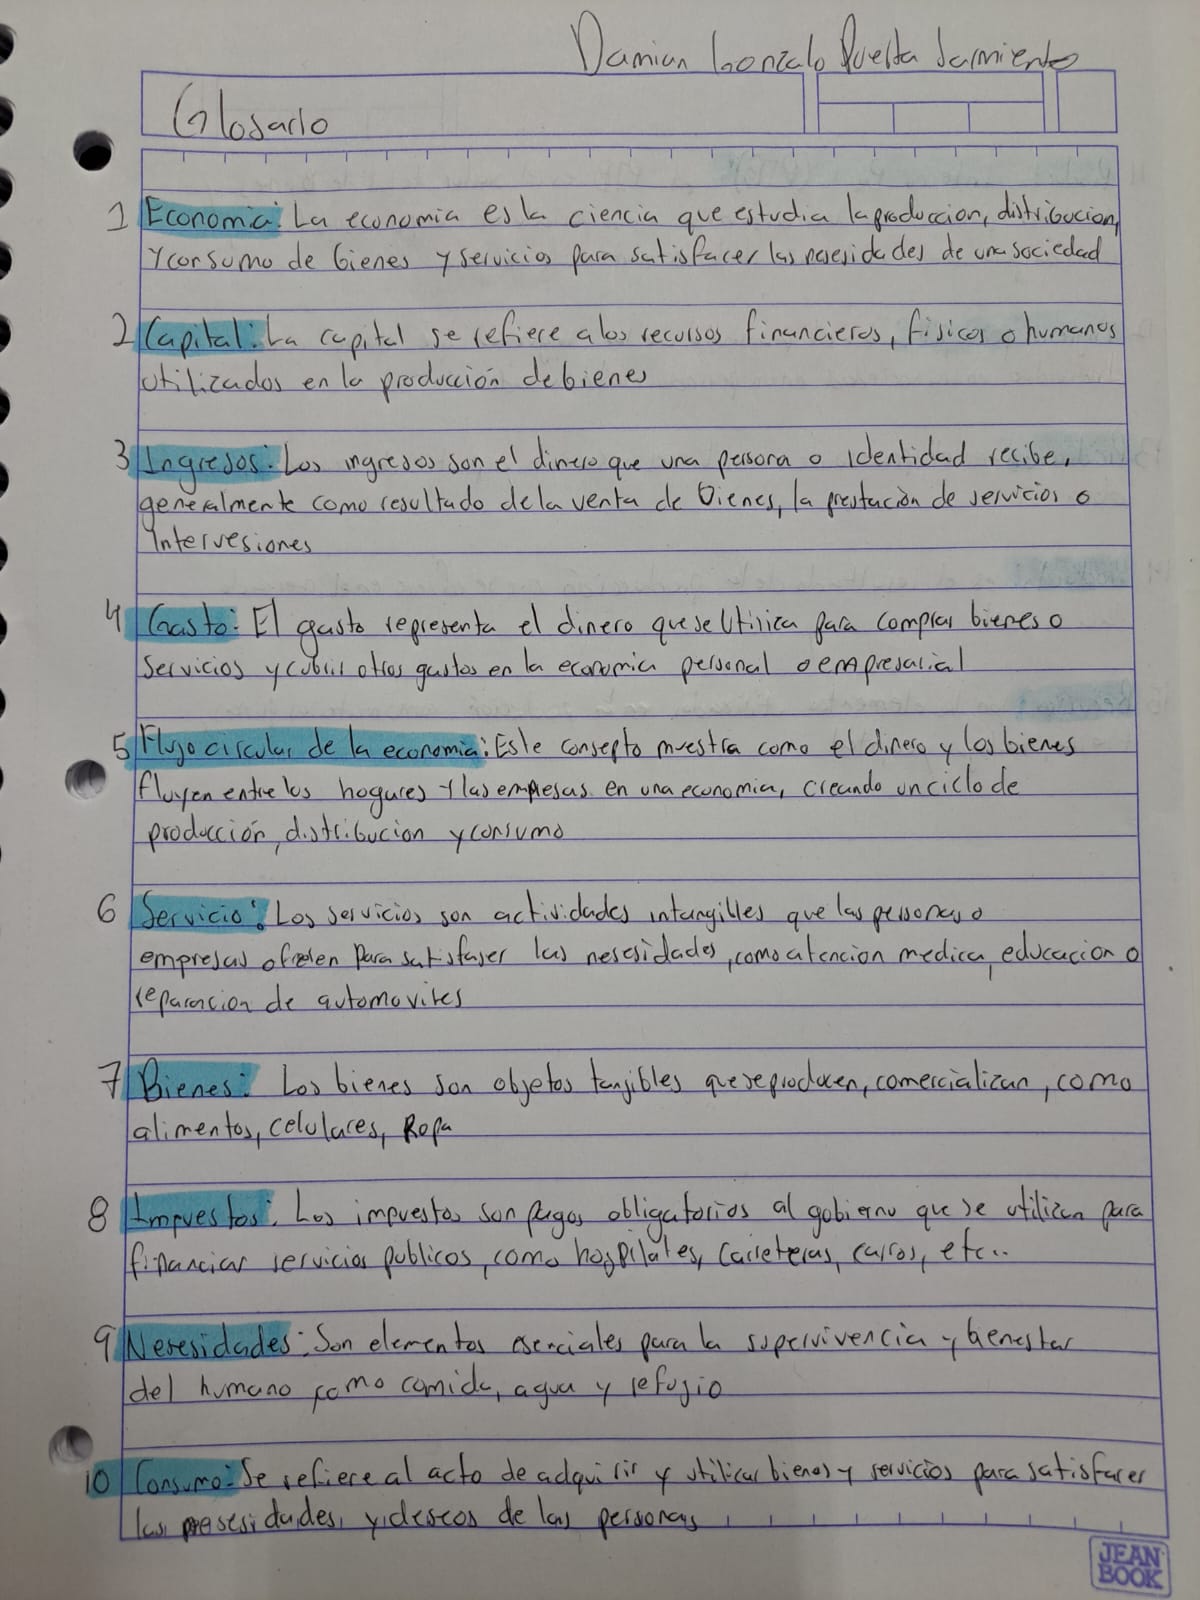 Damian Gonzalo Puerta Sarmiento
Glosario
1 Economia: La economia es la ciencia que estudia la produccion, distribucion,
y consumo de bienes y servicios para satisfacer las nesesidades de una sociedad
2 Capital: La capital se refiere a los recursos financieros, fisicos o humanos
utilizados en la producción de bienes
3 Ingresos: Los ingresos son el dinero que una persona o identidad recibe,
generalmente como resultado de la venta de bienes, la prestación de servicios o
intervesiones
4 Gasto: El gasto representa el dinero que se utiliza para comprar bienes o
servicios y cubrir otros gastos en la economia personal o empresarial
5 Flujo circular de la economia: Este consepto muestra como el dinero y los bienes
fluyen entre los hogares y las empresas en una economia, creando un ciclo de
producción, distribucion y consumo
6 Servicio: Los servicios son actividades intangilles que las personas o
empresas ofrecen para satisfaser las nesesidades, como atencion medica, educacion o
reparacion de automoviles
7 Bienes: Los bienes son objetos tanjibles que se producen, comercializan, como
alimentos, celulares, Ropa
8 Impuestos: Los impuestos son pagos obligatorios al gobierno que se utilizan para
financiar servicios publicos, como hospitales, carreteras, carros, etc..
9 Nesesidades: Son elementos esenciales para la supervivencia y bienestar
del humano como comida, agua y refugio
10 Consumo: Se refiere al acto de adquirir y utilizar bienes y servicios para satisfacer
las nesesidades, y deseos de las personas
JEAN
BOOK